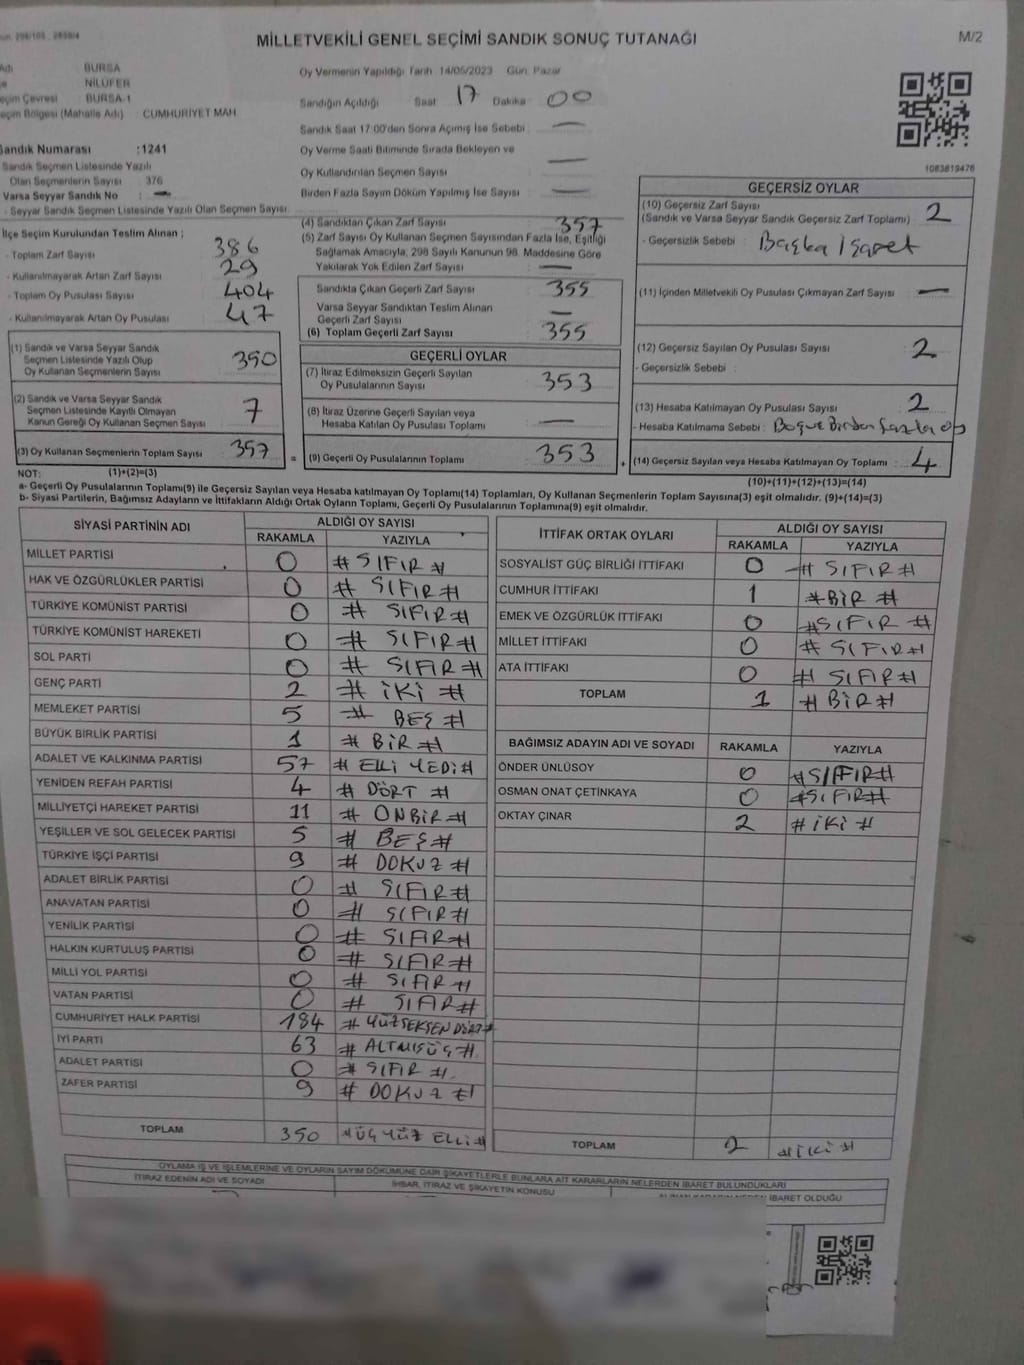 MİLLETVEKİLİ GENEL SEÇİMİ SANDIK SONUÇ TUTANAĞI
M/2
BURSA
NİLÜFER
BURSA-1
(Mahalle Adı) CUMHURİYET MAH.
Oy Vermenin Yapıldığı Tarih 14/05/2023 Gün: Pazar
Sandığın Açıldığı Saat 17 Dakika 00
Sandık Saat 17:00'den Sonra Açılmış İse Sebebi : —
Oy Verme Saati Bitiminde Sırada Bekleyen ve
Oy Kullandırılan Seçmen Sayısı : —
Birden Fazla Sayım Döküm Yapılmış İse Sayısı : —
1083819476
Sandık Numarası :1241
Sandık Seçmen Listesinde Yazılı
Olan Seçmenlerin Sayısı : 376
Varsa Seyyar Sandık No : —
- Seyyar Sandık Seçmen Listesinde Yazılı Olan Seçmen Sayısı:
İlçe Seçim Kurulundan Teslim Alınan ;
- Toplam Zarf Sayısı : 386
- Kullanılmayarak Artan Zarf Sayısı : 29
- Toplam Oy Pusulası Sayısı : 404
- Kullanılmayarak Artan Oy Pusulası : 47
(1) Sandık ve Varsa Seyyar Sandık
Seçmen Listesinde Yazılı Olup
Oy Kullanan Seçmenlerin Sayısı : 350
(2) Sandık ve Varsa Seyyar Sandık
Seçmen Listesinde Kayıtlı Olmayan
Kanun Gereği Oy Kullanan Seçmen Sayısı : 7
(3) Oy Kullanan Seçmenlerin Toplam Sayısı : 357
(4) Sandıktan Çıkan Zarf Sayısı : 357
(5) Zarf Sayısı Oy Kullanan Seçmen Sayısından Fazla İse, Eşitliği
Sağlamak Amacıyla, 298 Sayılı Kanunun 98. Maddesine Göre
Yakılarak Yok Edilen Zarf Sayısı : —
Sandıkta Çıkan Geçerli Zarf Sayısı : 355
Varsa Seyyar Sandıktan Teslim Alınan
Geçerli Zarf Sayısı : —
(6) Toplam Geçerli Zarf Sayısı : 355
GEÇERLİ OYLAR
(7) İtiraz Edilmeksizin Geçerli Sayılan
Oy Pusulalarının Sayısı : 353
(8) İtiraz Üzerine Geçerli Sayılan veya
Hesaba Katılan Oy Pusulası Toplamı : —
= (9) Geçerli Oy Pusulalarının Toplamı : 353
GEÇERSİZ OYLAR
(10) Geçersiz Zarf Sayısı
(Sandık ve Varsa Seyyar Sandık Geçersiz Zarf Toplamı) : 2
- Geçersizlik Sebebi : Başka İşaret
(11) İçinden Milletvekili Oy Pusulası Çıkmayan Zarf Sayısı : —
(12) Geçersiz Sayılan Oy Pusulası Sayısı : 2
- Geçersizlik Sebebi :
(13) Hesaba Katılmayan Oy Pusulası Sayısı : 2
- Hesaba Katılmama Sebebi : Boş ve Birden fazla oy
+ (14) Geçersiz Sayılan veya Hesaba Katılmayan Oy Toplamı : 4
NOT: (1)+(2)=(3)
(10)+(11)+(12)+(13)=(14)
a- Geçerli Oy Pusulalarının Toplamı(9) ile Geçersiz Sayılan veya Hesaba katılmayan Oy Toplamı(14) Toplamları, Oy Kullanan Seçmenlerin Toplam Sayısına(3) eşit olmalıdır. (9)+(14)=(3)
b- Siyasi Partilerin, Bağımsız Adayların ve İttifakların Aldığı Ortak Oyların Toplamı, Geçerli Oy Pusulalarının Toplamına(9) eşit olmalıdır.
SİYASİ PARTİNİN ADI ALDIĞI OY SAYISI
RAKAMLA YAZIYLA
MİLLET PARTİSİ 0 # SIFIR #
HAK VE ÖZGÜRLÜKLER PARTİSİ 0 # SIFIR #
TÜRKİYE KOMÜNİST PARTİSİ 0 # SIFIR #
TÜRKİYE KOMÜNİST HAREKETİ 0 # SIFIR #
SOL PARTİ 0 # SIFIR #
GENÇ PARTİ 2 # İKİ #
MEMLEKET PARTİSİ 5 # BEŞ #
BÜYÜK BİRLİK PARTİSİ 1 # BİR #
ADALET VE KALKINMA PARTİSİ 57 # ELLİ YEDİ #
YENİDEN REFAH PARTİSİ 4 # DÖRT #
MİLLİYETÇİ HAREKET PARTİSİ 11 # ONBİR #
YEŞİLLER VE SOL GELECEK PARTİSİ 5 # BEŞ #
TÜRKİYE İŞÇİ PARTİSİ 9 # DOKUZ #
ADALET BİRLİK PARTİSİ 0 # SIFIR #
ANAVATAN PARTİSİ 0 # SIFIR #
YENİLİK PARTİSİ 0 # SIFIR #
HALKIN KURTULUŞ PARTİSİ 0 # SIFIR #
MİLLİ YOL PARTİSİ 0 # SIFIR #
VATAN PARTİSİ 0 # SIFIR #
CUMHURİYET HALK PARTİSİ 184 # YÜZSEKSEN DÖRT #
İYİ PARTİ 63 # ALTMIŞÜÇ #
ADALET PARTİSİ 0 # SIFIR #
ZAFER PARTİSİ 9 # DOKUZ #
TOPLAM 350 # ÜÇ YÜZ ELLİ #
İTTİFAK ORTAK OYLARI ALDIĞI OY SAYISI
RAKAMLA YAZIYLA
SOSYALİST GÜÇ BİRLİĞİ İTTİFAKI 0 # SIFIR #
CUMHUR İTTİFAKI 1 # BİR #
EMEK VE ÖZGÜRLÜK İTTİFAKI 0 # SIFIR #
MİLLET İTTİFAKI 0 # SIFIR #
ATA İTTİFAKI 0 # SIFIR #
TOPLAM 1 # BİR #
BAĞIMSIZ ADAYIN ADI VE SOYADI RAKAMLA YAZIYLA
ÖNDER ÜNLÜSOY 0 # SIFIR #
OSMAN ONAT ÇETİNKAYA 0 # SIFIR #
OKTAY ÇINAR 2 # İKİ #
TOPLAM 2 # İKİ #
OYLAMA İŞ VE İŞLEMLERİNE VE OYLARIN SAYIM DÖKÜMÜNE DAİR ŞİKAYETLERLE BUNLARA AİT KARARLARIN NELERDEN İBARET BULUNDUKLARI
İTİRAZ EDENİN ADI VE SOYADI İHBAR, İTİRAZ VE ŞİKAYETİN KONUSU ALINAN KARARIN NEDEN İBARET OLDUĞU